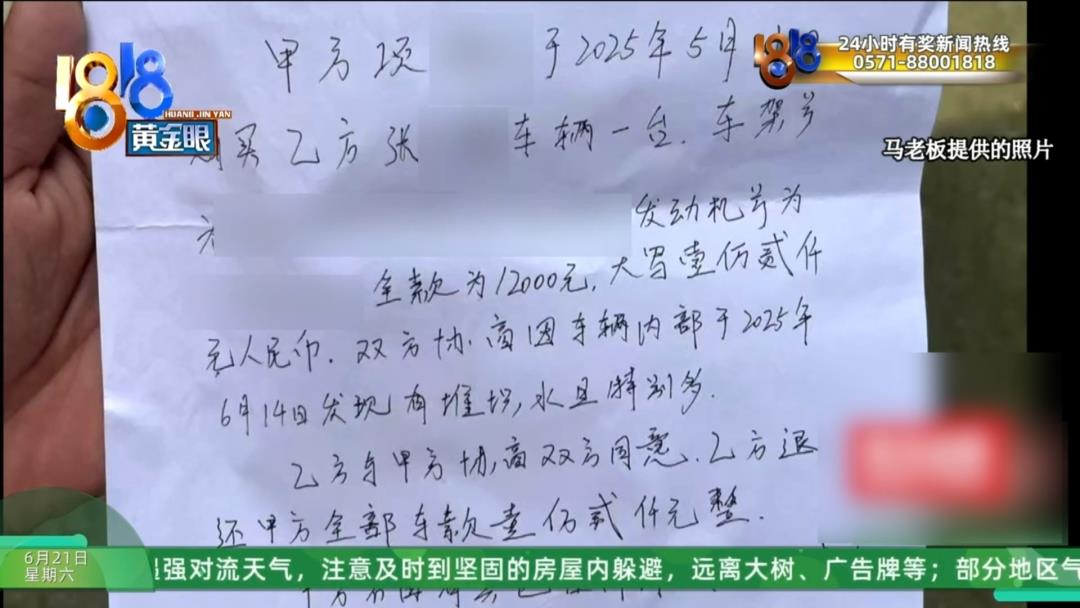 1818
HUANG JIN YAN
黄金眼
1818
24小时有奖新闻热线
0571-88001818
马老板提供的照片
甲方项 于2025年5月
购买乙方张 车辆一台.车架号
发动机号为
全款为12000元,大写壹仿贰仟
元人民币.双方协.商因车辆内部于2025年
6月14日发现有堆积,水且特别多.
乙方与甲方协,商双方同意.乙方退
还甲方全部车款壹仿贰仟元整.
6月21日
星期六
强对流天气，注意及时到坚固的房屋内躲避，远离大树、广告牌等；部分地区气